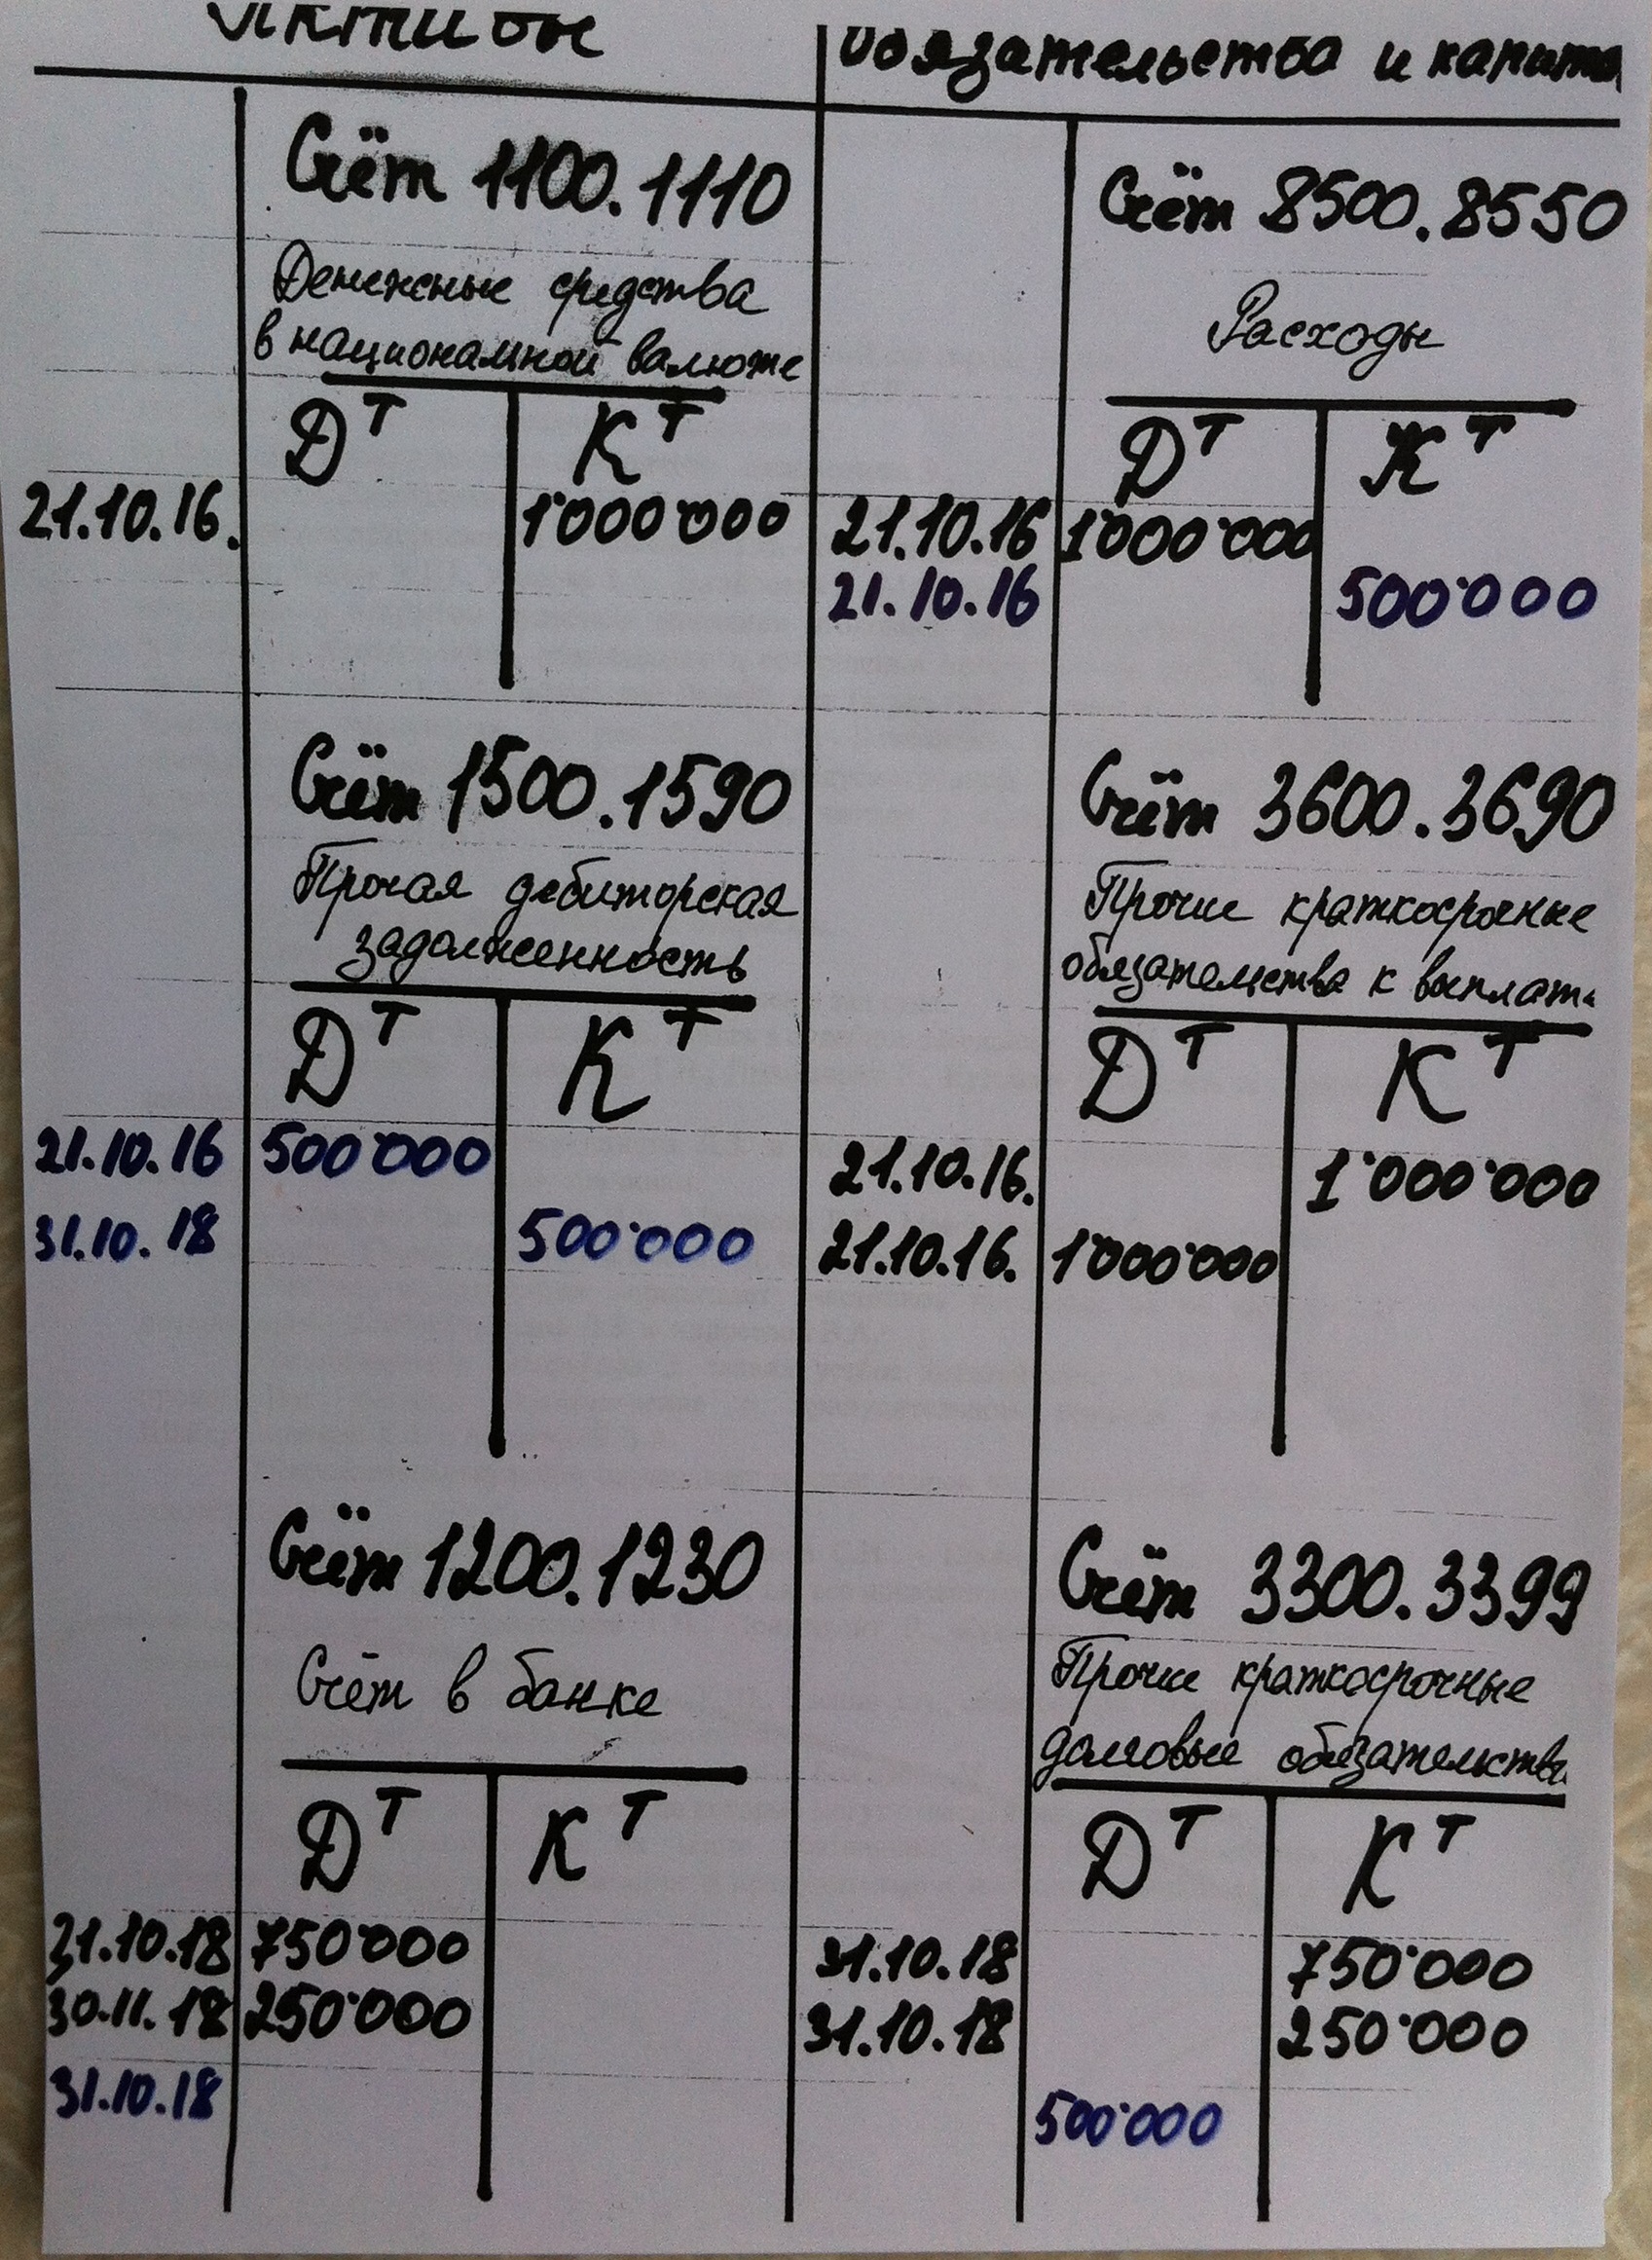 Активы
Обязательства и капита
Счёт 1100.1110
Денежные средства
в национальной валюте
Дт Кт
21.10.16. 1'000'000
Счёт 8500.8550
Расходы
Дт Кт
21.10.16 1'000'000
21.10.16 500'000
Счёт 1500.1590
Прочая дебиторская
задолженность
Дт Кт
21.10.16 500'000
31.10.18 500'000
Счёт 3600.3690
Прочие краткосрочные
обязательства к выплате
Дт Кт
21.10.16. 1'000'000
21.10.16. 1'000'000
Счёт 1200.1230
Счёт в банке
Дт Кт
31.10.18 750'000
30.11.18 250'000
31.10.18
Счёт 3300.3399
Прочие краткосрочные
долговые обязательства
Дт Кт
31.10.18 750'000
31.10.18 250'000
500'000